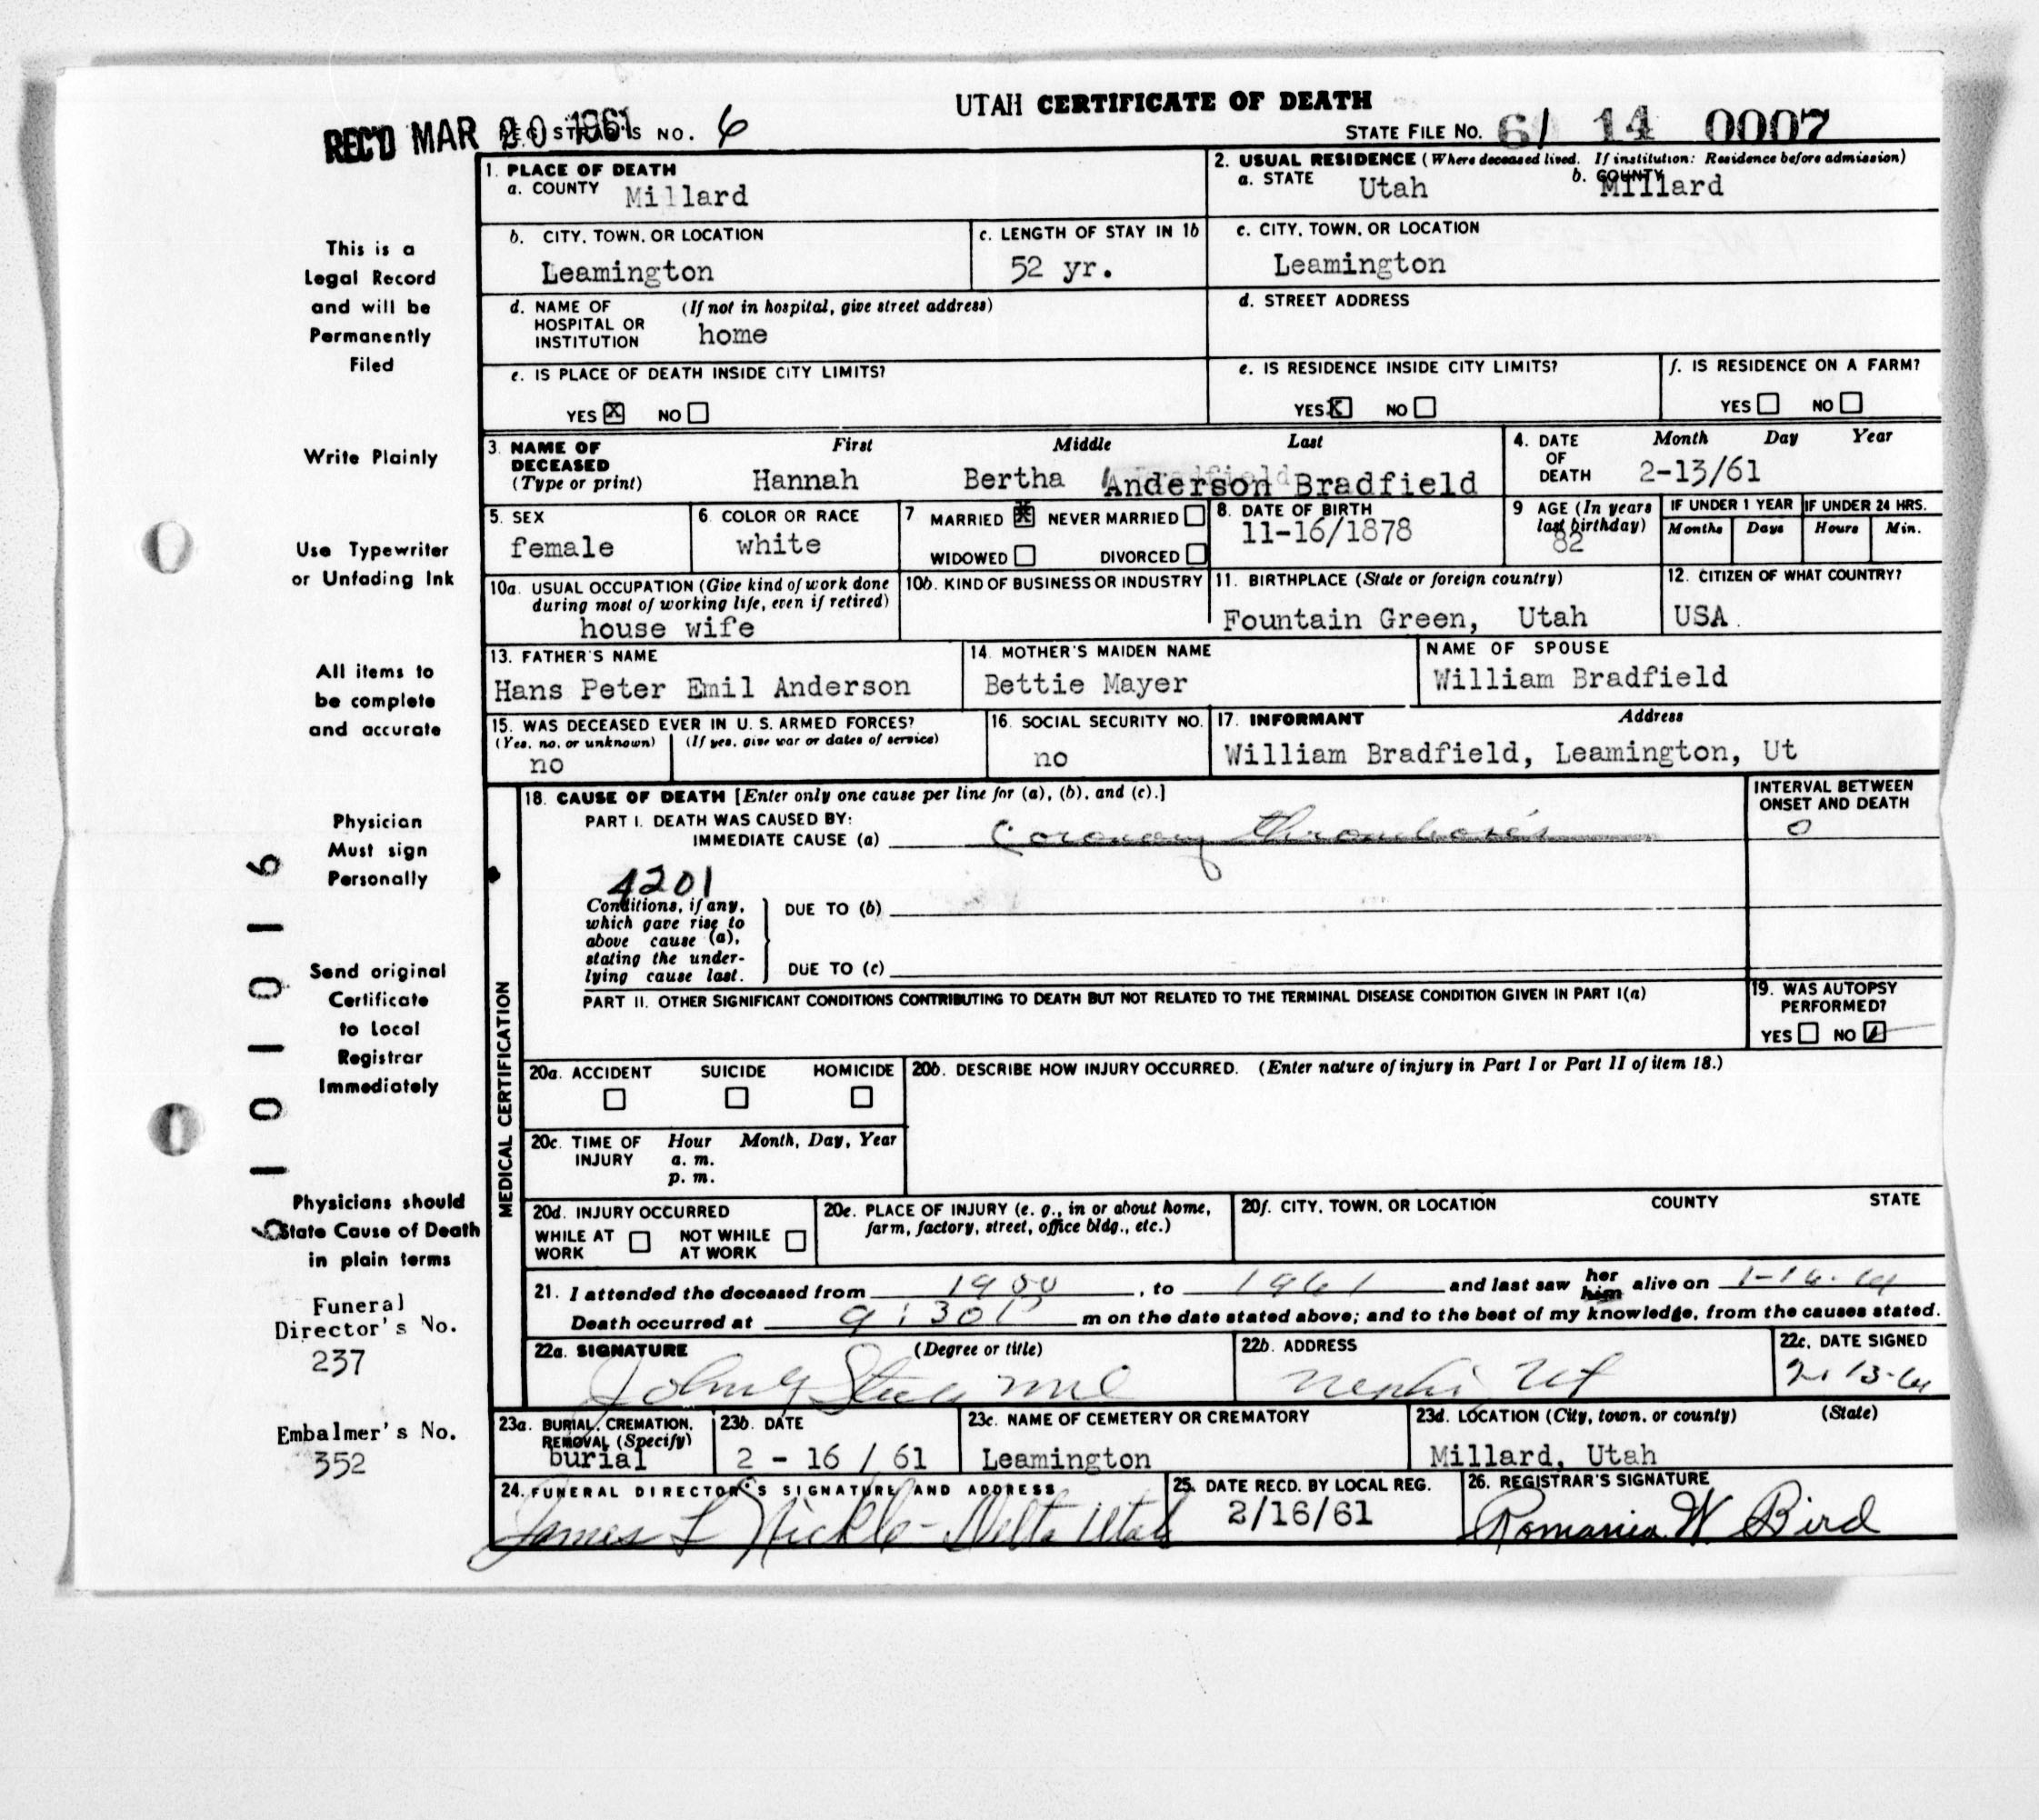 UTAH CERTIFICATE OF DEATH
REC'D MAR 20 1961 REGISTRAR'S NO. 6
STATE FILE NO. 61 14 0007
1. PLACE OF DEATH
a. COUNTY Millard
2. USUAL RESIDENCE (Where deceased lived. If institution: Residence before admission)
a. STATE Utah b. COUNTY Millard
b. CITY, TOWN, OR LOCATION
Leamington
c. LENGTH OF STAY IN 1b
52 yr.
c. CITY, TOWN, OR LOCATION
Leamington
d. NAME OF HOSPITAL OR INSTITUTION (If not in hospital, give street address)
home
d. STREET ADDRESS
e. IS PLACE OF DEATH INSIDE CITY LIMITS?
YES X NO
e. IS RESIDENCE INSIDE CITY LIMITS?
YES X NO
f. IS RESIDENCE ON A FARM?
YES NO
3. NAME OF DECEASED (Type or print)
First Middle Last
Hannah Bertha Anderson Bradfield
4. DATE OF DEATH Month Day Year
2-13/61
5. SEX
female
6. COLOR OR RACE
white
7 MARRIED X NEVER MARRIED
WIDOWED DIVORCED
8. DATE OF BIRTH
11-16/1878
9 AGE (In years last birthday)
82
IF UNDER 1 YEAR
Months Days
IF UNDER 24 HRS.
Hours Min.
10a. USUAL OCCUPATION (Give kind of work done during most of working life, even if retired)
house wife
10b. KIND OF BUSINESS OR INDUSTRY
11. BIRTHPLACE (State or foreign country)
Fountain Green, Utah
12. CITIZEN OF WHAT COUNTRY?
USA.
13. FATHER'S NAME
Hans Peter Emil Anderson
14. MOTHER'S MAIDEN NAME
Bettie Mayer
NAME OF SPOUSE
William Bradfield
15. WAS DECEASED EVER IN U. S. ARMED FORCES?
(Yes, no, or unknown) (If yes, give war or dates of service)
no
16. SOCIAL SECURITY NO.
no
17. INFORMANT Address
William Bradfield, Leamington, Ut
MEDICAL CERTIFICATION
18. CAUSE OF DEATH [Enter only one cause per line for (a), (b), and (c).]
PART I. DEATH WAS CAUSED BY:
IMMEDIATE CAUSE (a) Coronary thrombosis
INTERVAL BETWEEN ONSET AND DEATH
0
4201
Conditions, if any, which gave rise to above cause (a), stating the underlying cause last.
DUE TO (b)
DUE TO (c)
PART II. OTHER SIGNIFICANT CONDITIONS CONTRIBUTING TO DEATH BUT NOT RELATED TO THE TERMINAL DISEASE CONDITION GIVEN IN PART I(a)
19. WAS AUTOPSY PERFORMED?
YES NO
20a. ACCIDENT SUICIDE HOMICIDE
20b. DESCRIBE HOW INJURY OCCURRED. (Enter nature of injury in Part I or Part II of item 18.)
20c. TIME OF INJURY Hour Month, Day, Year
a. m.
p. m.
20d. INJURY OCCURRED
WHILE AT WORK NOT WHILE AT WORK
20e. PLACE OF INJURY (e. g., in or about home, farm, factory, street, office bldg., etc.)
20f. CITY, TOWN, OR LOCATION COUNTY STATE
21. I attended the deceased from 1950, to 1961 and last saw her him alive on 1-16-61
Death occurred at 9:30 P m on the date stated above; and to the best of my knowledge, from the causes stated.
22a. SIGNATURE (Degree or title)
22b. ADDRESS
Nephi Ut
22c. DATE SIGNED
2-13-61
23a. BURIAL, CREMATION, REMOVAL (Specify)
burial
23b. DATE
2 - 16 / 61
23c. NAME OF CEMETERY OR CREMATORY
Leamington
23d. LOCATION (City, town, or county) (State)
Millard, Utah
24. FUNERAL DIRECTOR'S SIGNATURE AND ADDRESS
James L Nickle - Delta Utah
25. DATE RECD. BY LOCAL REG.
2/16/61
26. REGISTRAR'S SIGNATURE
Romania W Bird
This is a
Legal Record
and will be
Permanently
Filed
Write Plainly
Use Typewriter
or Unfading Ink
All items to
be complete
and accurate
Physician
Must sign
Personally
Send original
Certificate
to Local
Registrar
Immediately
Physicians should
State Cause of Death
in plain terms
Funeral
Director's No.
237
Embalmer's No.
352